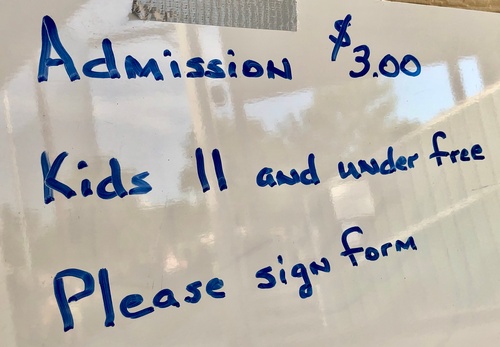 Admission $3.00
Kids 11 and under free
Please sign form